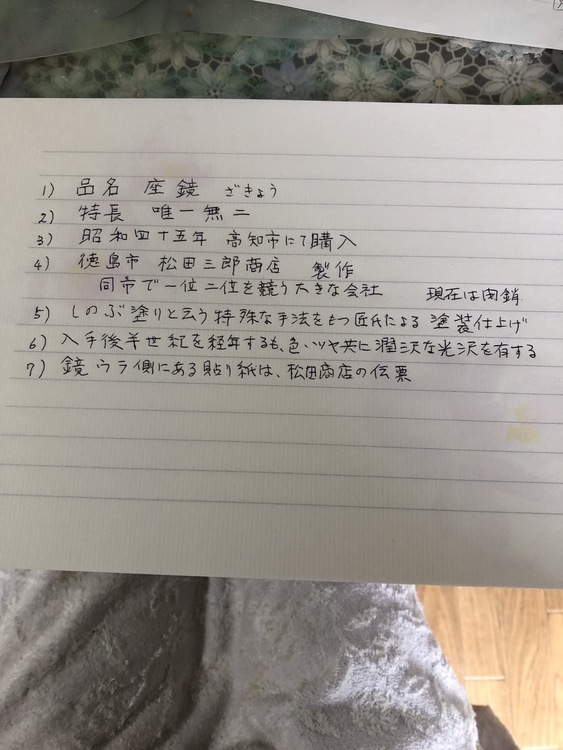 1) 品名 座鏡 ざきょう
2) 特長 唯一無二
3) 昭和四十五年 高知市にて購入
4) 徳島市 松田三郎商店 製作
同市で一位二位を競う大きな会社 現在は閉鎖
5) しのぶ塗りと云う特殊な手法をもつ匠氏による塗装仕上げ
6) 入手後半世紀を経年するも、色・ツヤ共に潤沢な光沢を有する
7) 鏡ウラ側にある貼り紙は、松田商店の伝票